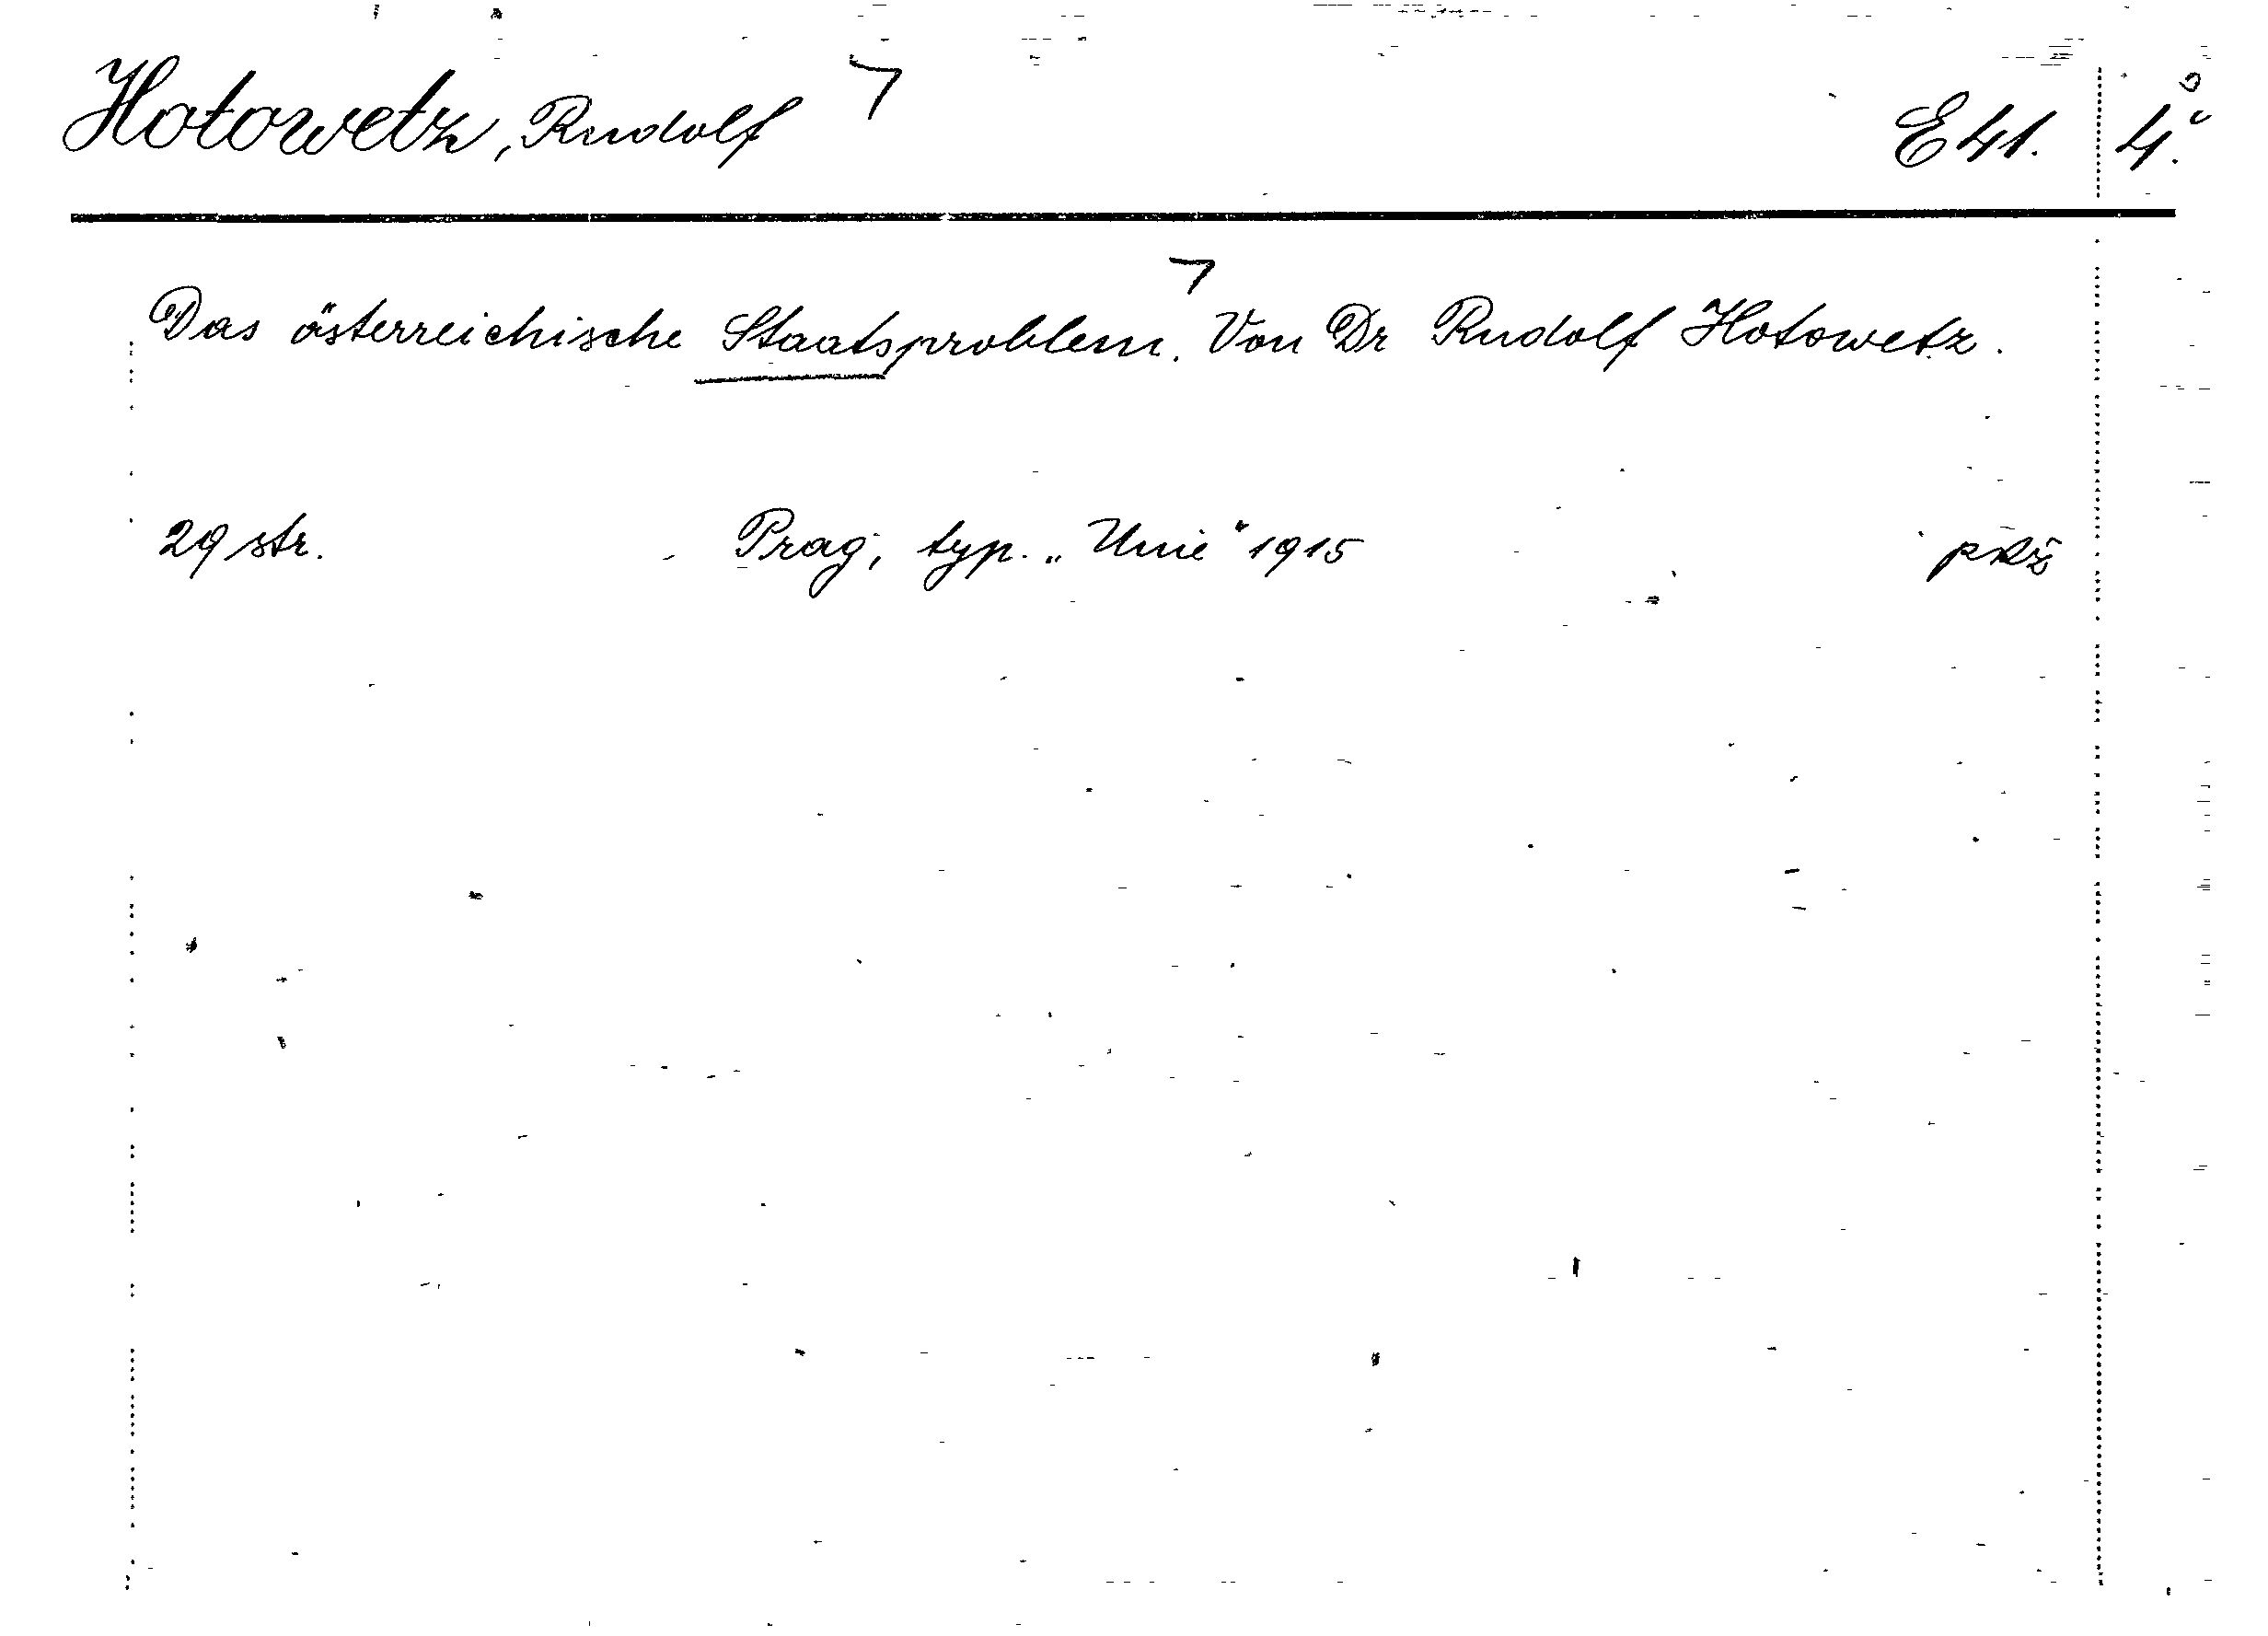 Hotowetz, Rudolf E 41. 4.°
Das österreichische Staatsproblem. Von Dr Rudolf Hotowetz.
29 str. Prag, typ. „Unie“ 1915